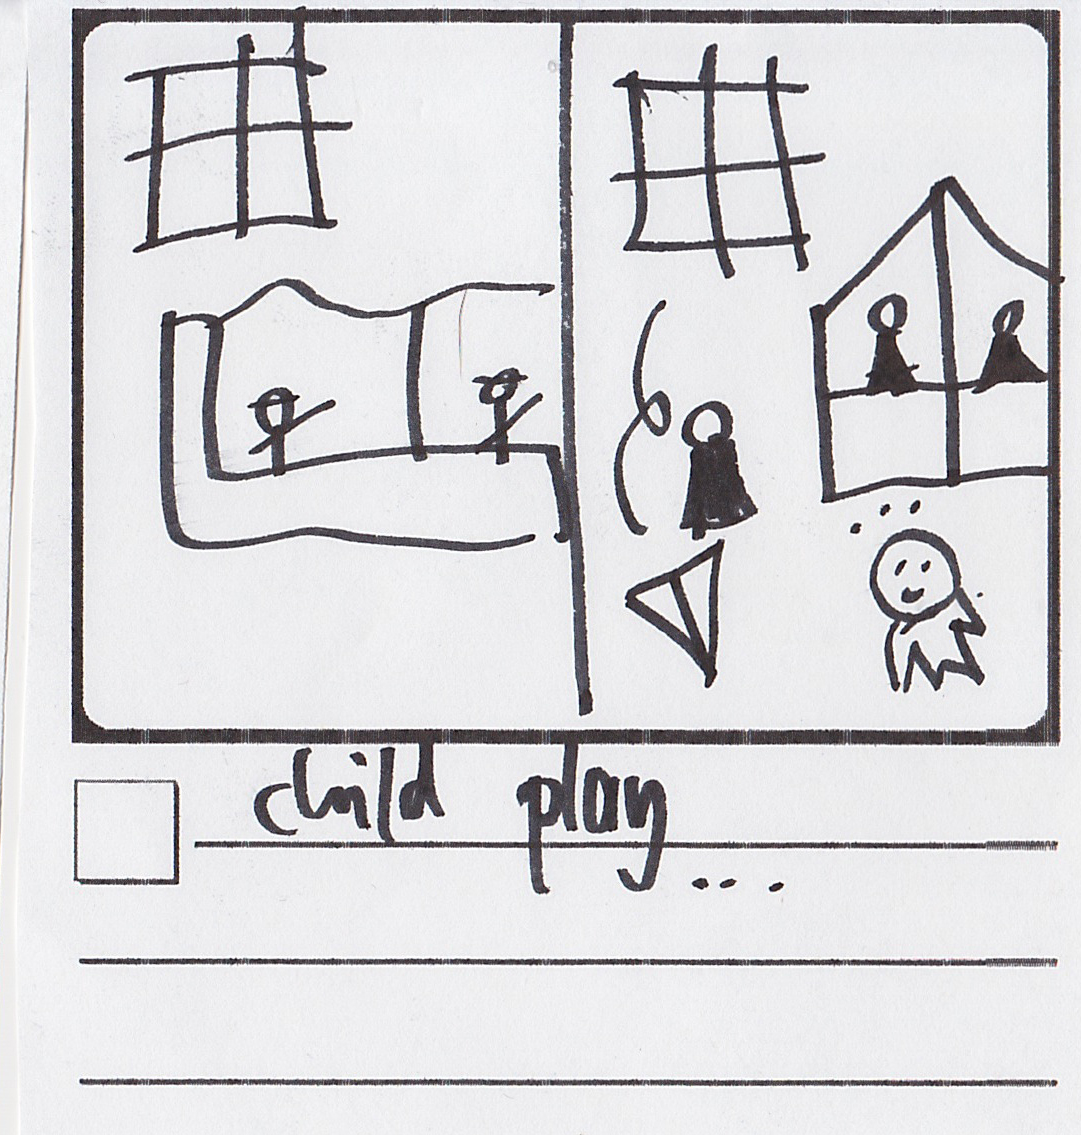 child play...